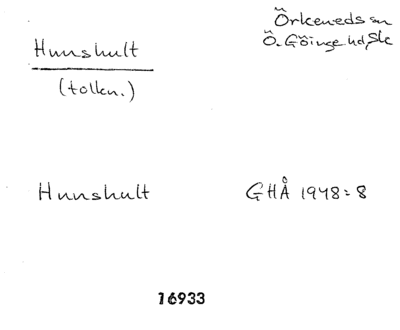 Örkeneds sn
Ö. Göinge hd, Sk
Hunshult
(tolkn.)
Hunshult GHÅ 1948:8
16933